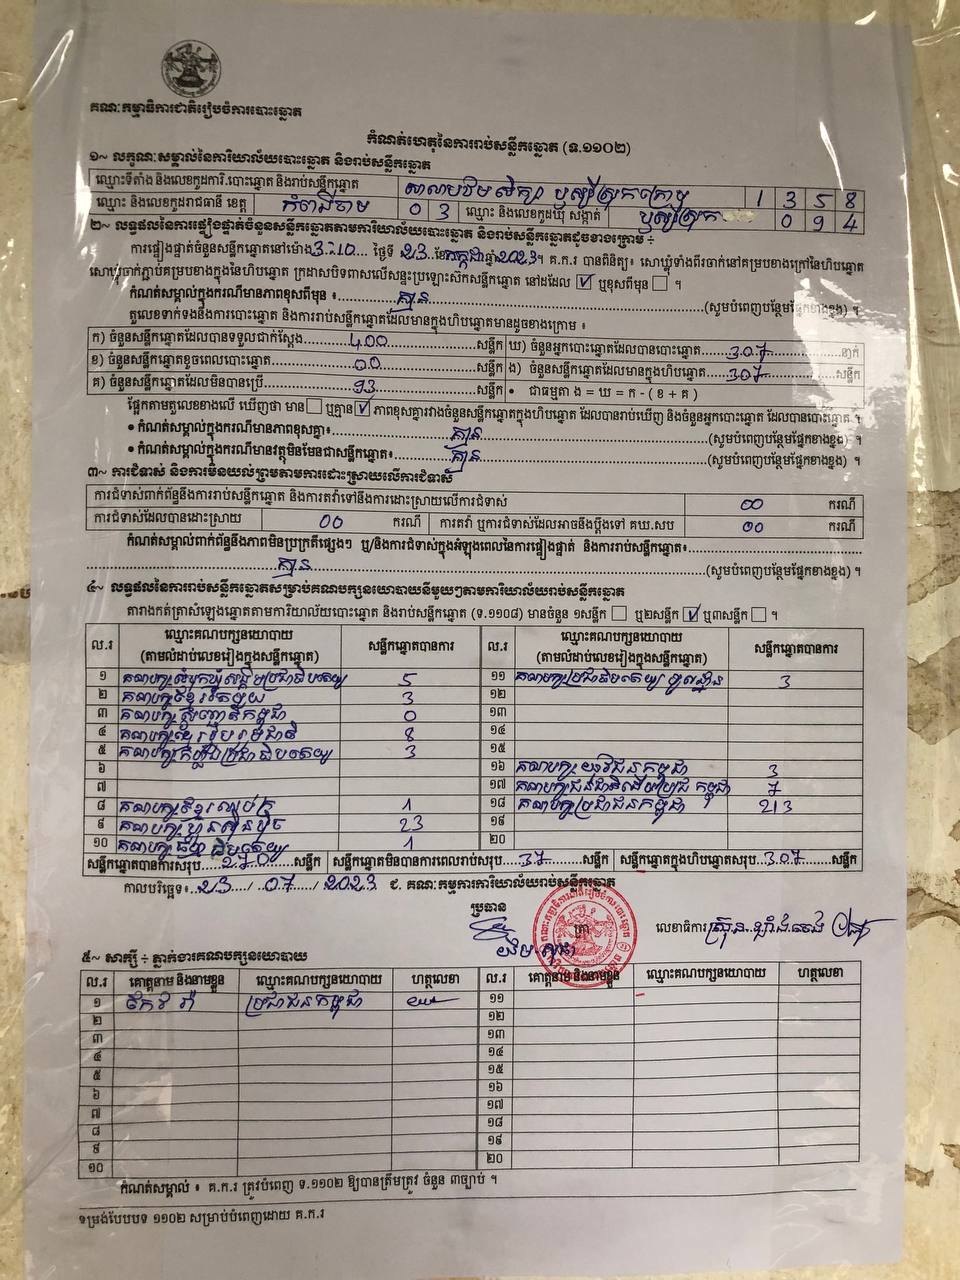 គណៈកម្មាធិការជាតិរៀបចំការបោះឆ្នោត
កំណត់ហេតុនៃការរាប់សន្លឹកឆ្នោត (ទ.១១០២)
១~ លក្ខណៈសម្គាល់នៃការិយាល័យបោះឆ្នោត និងរាប់សន្លឹកឆ្នោត
ឈ្មោះទីតាំង និងលេខកូដការិ.បោះឆ្នោត និងរាប់សន្លឹកឆ្នោត សាលាបឋមសិក្សា ឫស្សីស្រុកក្រោម 1 3 5 8
ឈ្មោះ និងលេខកូដរាជធានី ខេត្ត កំពង់ចាម 0 3 ឈ្មោះ និងលេខកូដឃុំ សង្កាត់ ឫស្សីស្រុក 0 9 4
២~ លទ្ធផលនៃការផ្ទៀងផ្ទាត់ចំនួនសន្លឹកឆ្នោតតាមការិយាល័យបោះឆ្នោត និងរាប់សន្លឹកឆ្នោតដូចខាងក្រោម ÷
ការផ្ទៀងផ្ទាត់ចំនួនសន្លឹកឆ្នោតនៅម៉ោង 3:10 ថ្ងៃទី 23 ខែ កក្កដា ឆ្នាំ 2023។ គ.ក.រ បានពិនិត្យ៖ សោឃ្លុំទាំងពីរចាក់នៅគម្របខាងក្រៅនៃហិបឆ្នោត
សោឃ្លុំចាក់ភ្ជាប់គម្របខាងក្នុងនៃហិបឆ្នោត ក្រដាសបិទពាសលើសន្ទះប្រឡោះស៊កសន្លឹកឆ្នោត នៅដដែល ☑ ឬខុសពីមុន ☐ ។
កំណត់សម្គាល់ក្នុងករណីមានភាពខុសពីមុន ៖ គ្មាន (សូមបំពេញបន្ថែមផ្នែកខាងខ្នង) ។
តួលេខទាក់ទងនឹងការបោះឆ្នោត និងការរាប់សន្លឹកឆ្នោតដែលមានក្នុងហិបឆ្នោតមានដូចខាងក្រោម ៖
ក) ចំនួនសន្លឹកឆ្នោតដែលបានទទួលជាក់ស្តែង 400 សន្លឹក ឃ) ចំនួនអ្នកបោះឆ្នោតដែលបានបោះឆ្នោត 307 នាក់
ខ) ចំនួនសន្លឹកឆ្នោតខូចពេលបោះឆ្នោត 00 សន្លឹក ង) ចំនួនសន្លឹកឆ្នោតដែលមានក្នុងហិបឆ្នោត 307 សន្លឹក
គ) ចំនួនសន្លឹកឆ្នោតដែលមិនបានប្រើ 93 សន្លឹក • ជាធម្មតា ង = ឃ = ក - ( ខ + គ )
ផ្អែកតាមតួលេខខាងលើ ឃើញថា មាន ☐ ឬគ្មាន ☑ ភាពខុសគ្នារវាងចំនួនសន្លឹកឆ្នោតក្នុងហិបឆ្នោត ដែលបានរាប់ឃើញ និងចំនួនអ្នកបោះឆ្នោត ដែលបានបោះឆ្នោត ។
• កំណត់សម្គាល់ក្នុងករណីមានភាពខុសគ្នា៖ គ្មាន (សូមបំពេញបន្ថែមផ្នែកខាងខ្នង) ។
• កំណត់សម្គាល់ក្នុងករណីមានវត្ថុមិនមែនជាសន្លឹកឆ្នោត៖ គ្មាន (សូមបំពេញបន្ថែមផ្នែកខាងខ្នង) ។
៣~ ការជំទាស់ និងការមិនយល់ព្រមតាមការដោះស្រាយលើការជំទាស់
ការជំទាស់ពាក់ព័ន្ធនឹងការរាប់សន្លឹកឆ្នោត និងការតវ៉ាទៅនឹងការដោះស្រាយលើការជំទាស់ 00 ករណី
ការជំទាស់ដែលបានដោះស្រាយ 00 ករណី ការតវ៉ា ឬការជំទាស់ដែលអាចនឹងប្តឹងទៅ គឃ.សប 00 ករណី
កំណត់សម្គាល់ពាក់ព័ន្ធនឹងភាពមិនប្រក្រតីផ្សេងៗ ឬ/និងការជំទាស់ក្នុងអំឡុងពេលនៃការផ្ទៀងផ្ទាត់ និងការរាប់សន្លឹកឆ្នោត៖
គ្មាន (សូមបំពេញបន្ថែមផ្នែកខាងខ្នង) ។
៤~ លទ្ធផលនៃការរាប់សន្លឹកឆ្នោតសម្រាប់គណបក្សនយោបាយនីមួយៗតាមការិយាល័យរាប់សន្លឹកឆ្នោត
តារាងកត់ត្រាសំឡេងឆ្នោតតាមការិយាល័យបោះឆ្នោត និងរាប់សន្លឹកឆ្នោត (ទ.១១០៨) មានចំនួន ១សន្លឹក ☐ ឬ២សន្លឹក ☑ ឬ៣សន្លឹក ☐ ។
ល.រ ឈ្មោះគណបក្សនយោបាយ (តាមលំដាប់លេខរៀងក្នុងសន្លឹកឆ្នោត) សន្លឹកឆ្នោតបានការ ល.រ ឈ្មោះគណបក្សនយោបាយ (តាមលំដាប់លេខរៀងក្នុងសន្លឹកឆ្នោត) សន្លឹកឆ្នោតបានការ
១ គណបក្សសំបុកឃ្មុំសង្គមប្រជាធិបតេយ្យ 5 ១១ គណបក្សប្រជាធិបតេយ្យមូលដ្ឋាន 3
២ គណបក្សខ្មែររួបរួម 3 ១២
៣ 0 ១៣
៤ គណបក្ស 8 ១៤
៥ គណបក្សកម្លាំងប្រជាធិបតេយ្យ 3 ១៥
៦ ១៦ គណបក្សយុវជនកម្ពុជា 3
៧ ១៧ គណបក្សជនជាតិដើមប្រជាធិបតេយ្យកម្ពុជា 7
៨ គណបក្សខ្មែរឈប់ក្រ 1 ១៨ គណបក្សប្រជាជនកម្ពុជា 213
៩ គណបក្សហ្វ៊ុនស៊ិនប៉ិច 23 ១៩
១០ គណបក្ស 1 ២០
សន្លឹកឆ្នោតបានការសរុប 270 សន្លឹក សន្លឹកឆ្នោតមិនបានការពេលរាប់សរុប 37 សន្លឹក សន្លឹកឆ្នោតក្នុងហិបឆ្នោតសរុប 307 សន្លឹក
កាលបរិច្ឆេទ៖ 23 / 07 / 2023 ជ. គណៈកម្មការការិយាល័យរាប់សន្លឹកឆ្នោត
ប្រធាន ត្រា លេខាធិការ
៥~ សាក្សី ÷ ភ្នាក់ងារគណបក្សនយោបាយ
ល.រ គោត្តនាម និងនាមខ្លួន ឈ្មោះគណបក្សនយោបាយ ហត្ថលេខា ល.រ គោត្តនាម និងនាមខ្លួន ឈ្មោះគណបក្សនយោបាយ ហត្ថលេខា
១ កែវ រ៉ា ប្រជាជនកម្ពុជា ១១
២ ១២
៣ ១៣
៤ ១៤
៥ ១៥
៦ ១៦
៧ ១៧
៨ ១៨
៩ ១៩
១០ ២០
កំណត់សម្គាល់ ៖ គ.ក.រ ត្រូវបំពេញ ទ.១១០២ ឱ្យបានត្រឹមត្រូវ ចំនួន ៣ច្បាប់ ។
ទម្រង់បែបបទ ១១០២ សម្រាប់បំពេញដោយ គ.ក.រ